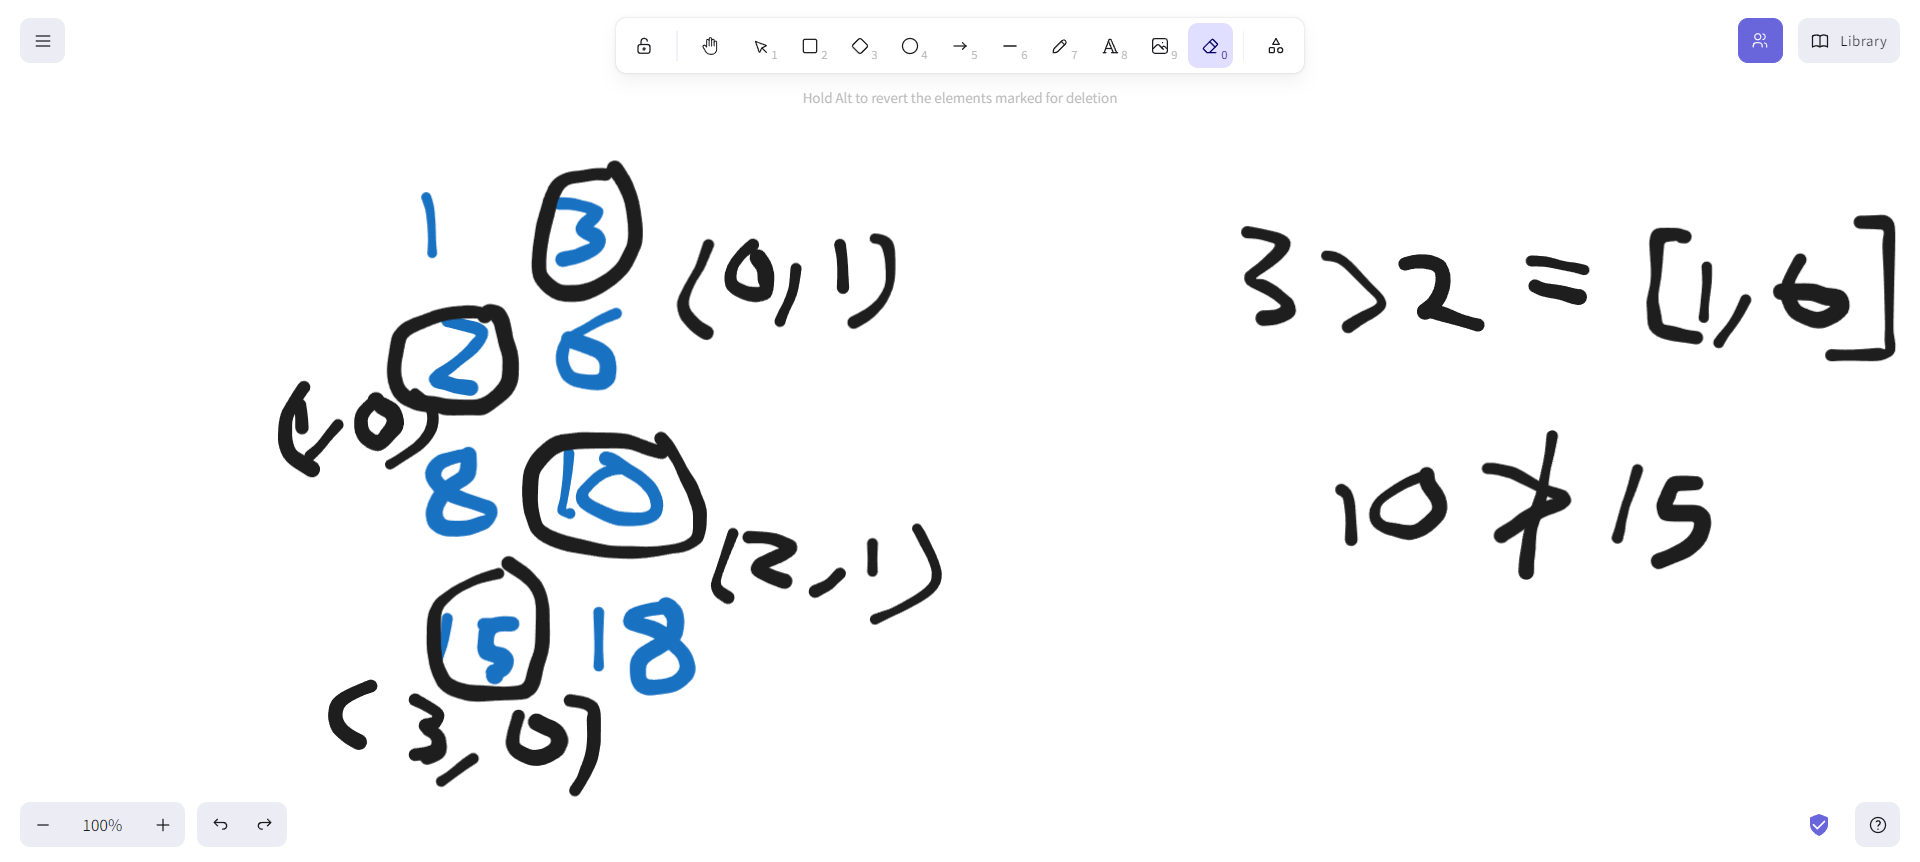 1 2 3 4 5 6 7 8 9 0
Library
Hold Alt to revert the elements marked for deletion
1 3
(0,1)
3 > 2 = [1,6]
2 6
(1,0)
8 10
(2,1)
10 ≯ 15
15 18
(3,0)
100%